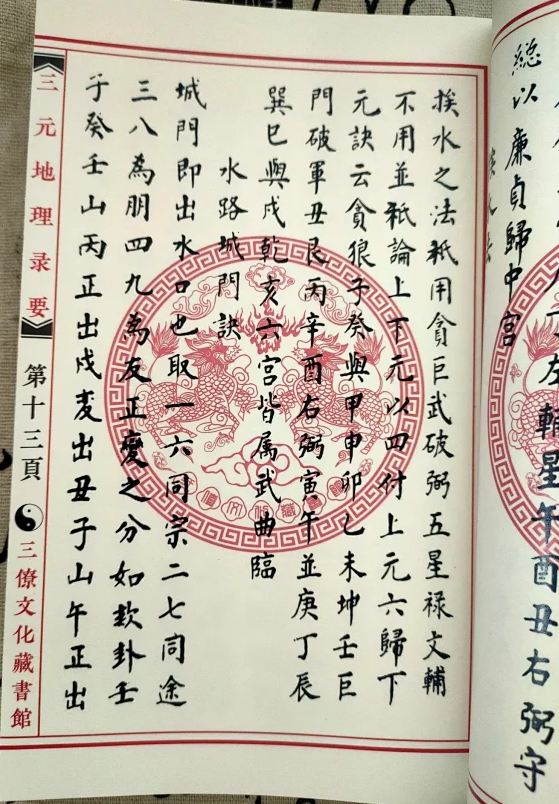 總以廉貞歸中宮
左輔星午酉丑右弼守
挨水之法秖用貪巨武破弼五星祿文輔
不用並秖論上下元以四付上元六歸下
元訣云貪狼子癸與甲申卯乙未坤壬巨
門破軍丑艮丙辛酉右弼寅午並庚丁辰
巽巳與戌乾亥六宮皆属武曲臨
水路城門訣
城門即出水口也取一六同宗二七同途
三八為朋四九為友正變之分如坎卦壬
子癸壬山丙正出戌変出丑子山午正出
三元地理录要
第十三頁
三僚文化藏書館